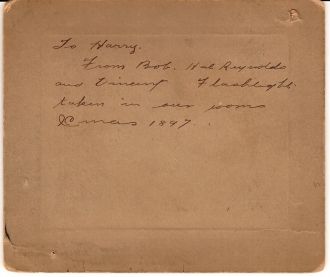 To Harry.
From Bob. Hal Reynolds
and Vincent Flashlight.
taken in our rooms
Xmas 1897.